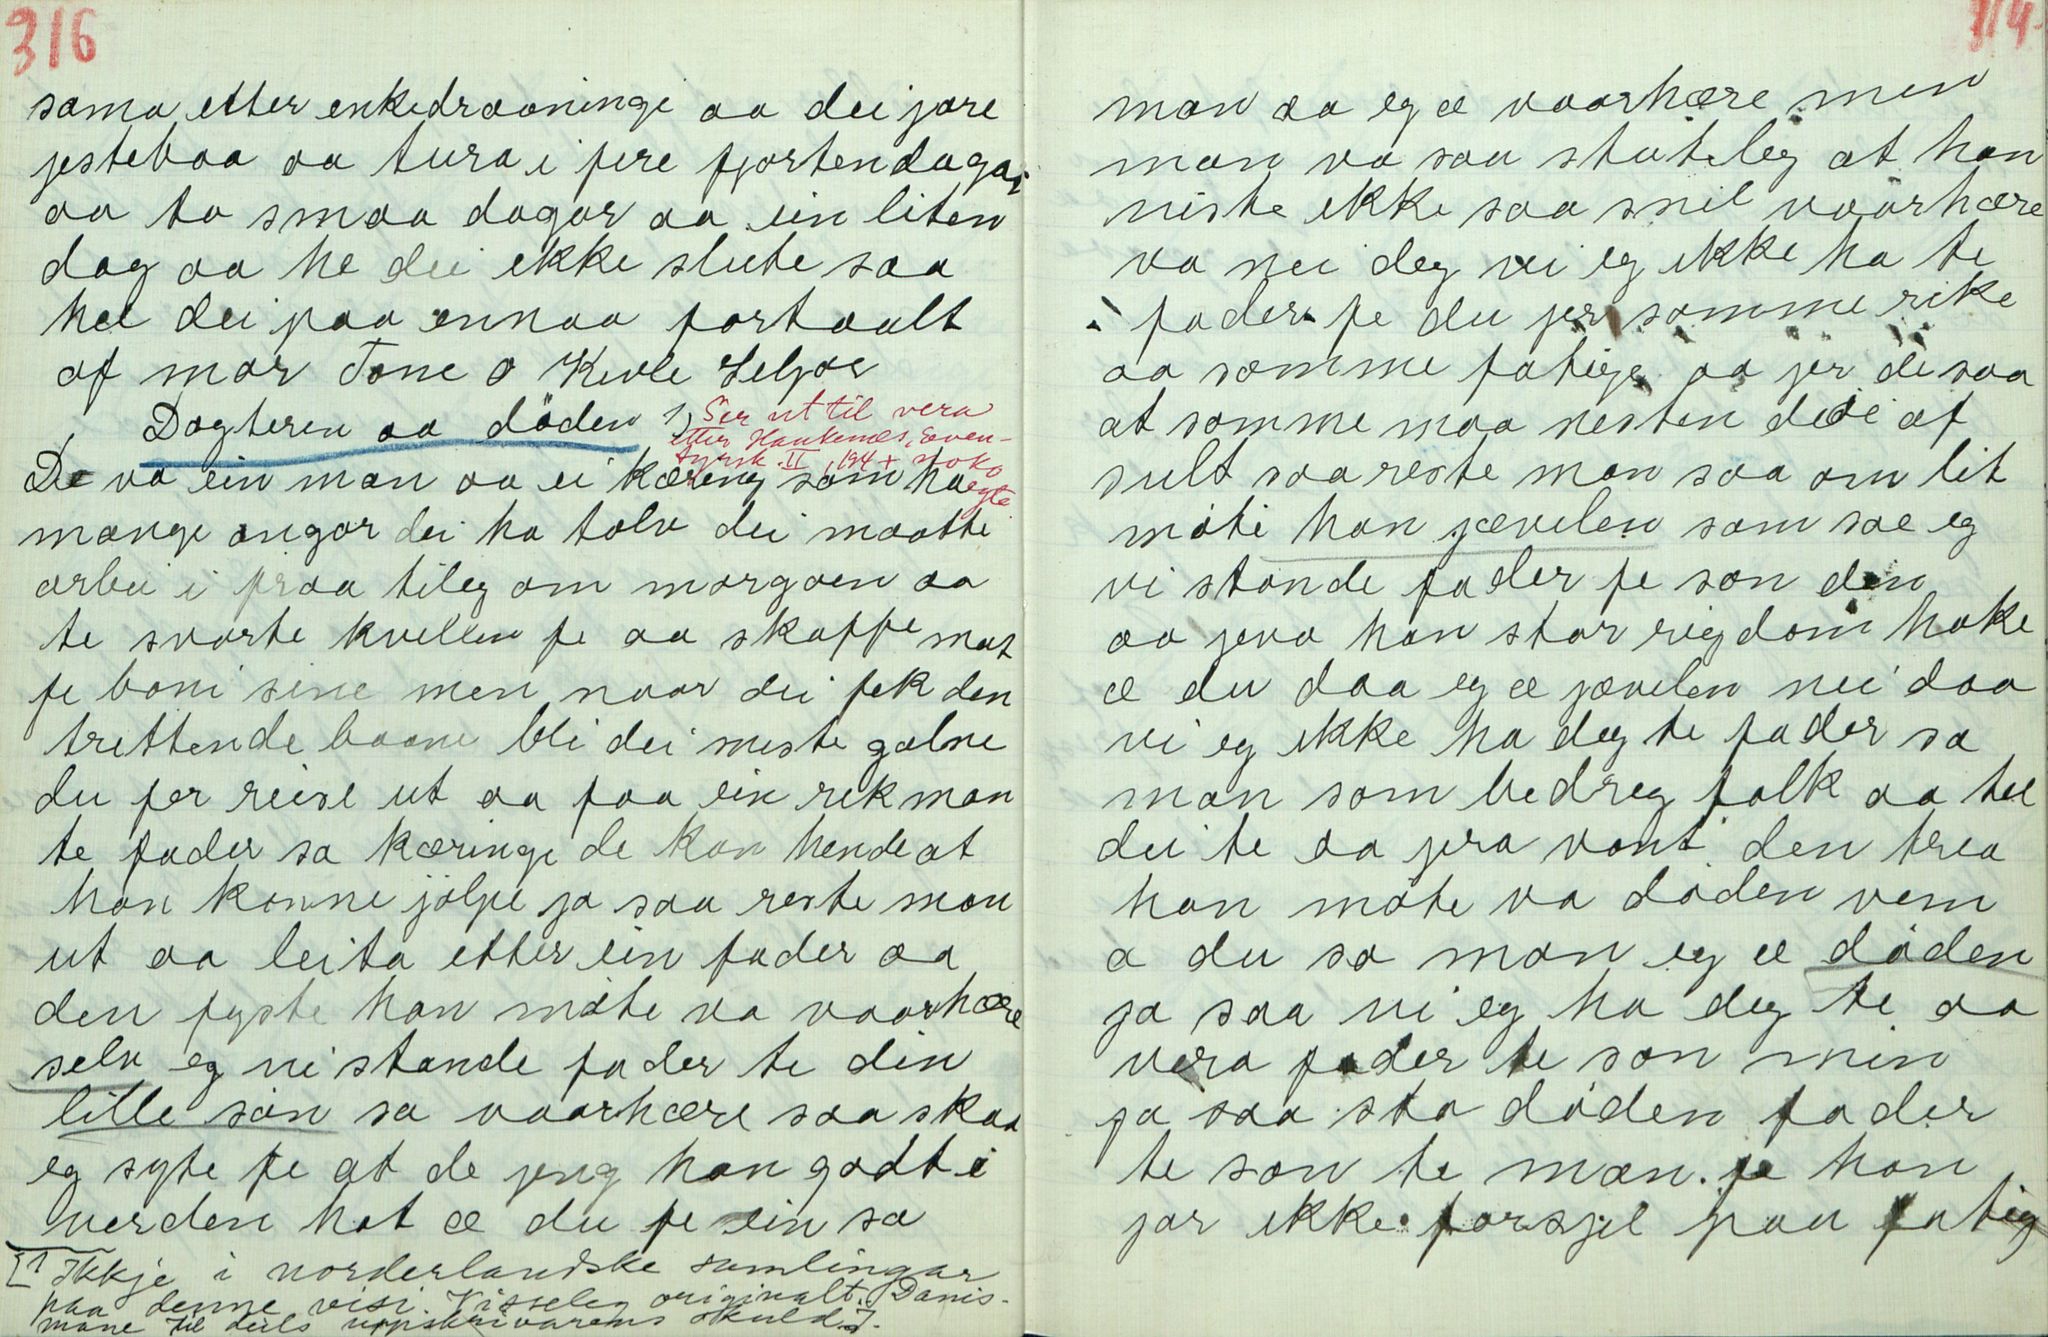 316
sama etter enkedraaningi aa dei jore
jestebaa aa tura i fire fjortendagar
aa to smaa dagar aa ein liten
dag aa he dei ikke slute saa
hel dei paa ennaa fortaalt
af mor Tone O Kivle Seljor
Dogteren aa döden 1) Ser ut til vera
etter Haukenæs, Even-
tyrsk. II, 194 + noko
De va ein man aa ei kæring som ha
mange ongar dei ha tolv dei maatte
arbei i fraa tileg om morgoen aa
te svarte kvellen fe aa skaffe mat
fe boni sine men naar dei fek den
trettende baane bli dei meste galne
du fer reise ut aa faa ein rek man
te fader sa kæringe de kan hende at
han konne jölpe ja saa reste man
ut aa leita etter ein fader aa
den fyste han möte va vaarhære
selv eg vi stande fader te din
lille sön sa vaarhære saa skaa
eg syte fe at de jeng han godt i
verden hot æ du fe ein sa
[1 Ikkje i norderlandske samlingar
paa denne visi. Visseleg originalt. Danis-
mane til deils uppskrivarens skuld.].
314
man aa eg æ vaarhære men
man va saa stuteleg at han
niste ikke saa snil vaarhære
va nei deg vi eg ikke ha te
fader fe du jer somme rike
aa somme fatige aa jer de saa
at somme maa nesten döi af
sult saa reste man saa om lit
möte han jævelen som sae eg
vi stande fader fe son din
aa jeva han stor rigdom hoke
æ du daa eg æ jævelen nei daa
vi eg ikke ha deg te fader sa
man som bedreg folk aa hel
dei te aa jera vont den trea
han möte va döden vem
æ du sa man eg æ döden
ja saa vi eg ha deg te aa
vera fader te son min
ja saa sto döden fader
te son te man. fe han
jor ikke forsjel paa fatig